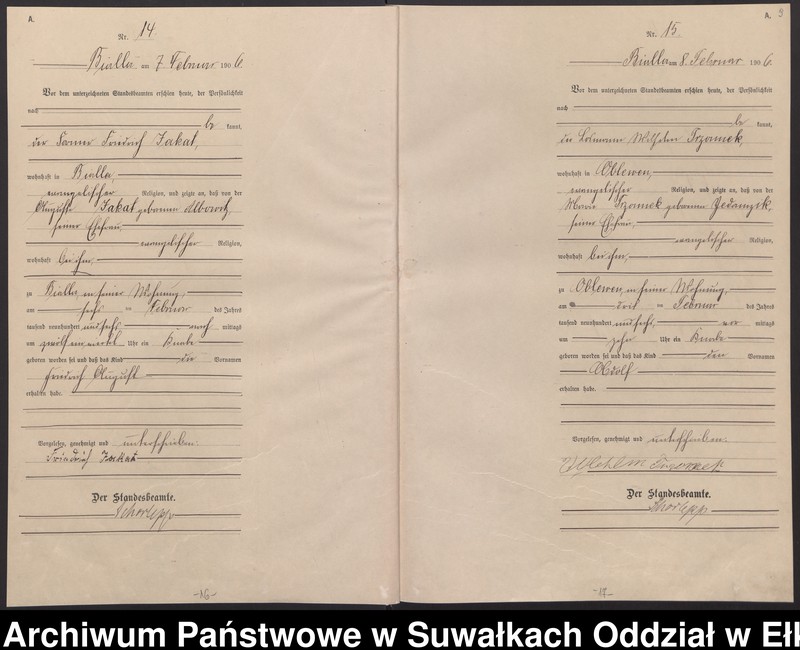 A.
Nr. 14.
Bialla am 7 Februar 1906.
Vor dem unterzeichneten Standesbeamten erschien heute, der Persönlichkeit
nach
be kannt,
der Friedrich Jakat,
wohnhaft in Bialla,
evangelischer Religion, und zeigte an, daß von der
Auguste Jakat geborenen
seiner Ehefrau,
evangelischer Religion,
wohnhaft bei ihm,
zu Bialla, in seiner Wohnung,
am sechs ten Februar des Jahres
tausend neunhundert und sechs, nach mittags
um Uhr ein Knabe
geboren worden sei und daß das Kind die Vornamen
Friedrich August
erhalten habe.
Vorgelesen, genehmigt und unterschrieben:
Friedrich Jakat
Der Standesbeamte.
Schorlepp
-16-
A. 9
Nr. 15.
Bialla am 8 Februar 1906.
Vor dem unterzeichneten Standesbeamten erschien heute, der Persönlichkeit
nach
be kannt,
der Wilhelm Trzonnek,
wohnhaft in Oblewen,
evangelischer Religion, und zeigte an, daß von der
Marie Trzonnek geborenen
seiner Ehefrau,
evangelischer Religion,
wohnhaft bei ihm,
zu Oblewen, in seiner Wohnung,
am drei ten Februar des Jahres
tausend neunhundert und sechs, vor mittags
um zehn Uhr ein Knabe
geboren worden sei und daß das Kind den Vornamen
Adolf
erhalten habe.
Vorgelesen, genehmigt und unterschrieben:
Wilhelm
Der Standesbeamte.
Schorlepp
-17-
Archiwum Państwowe w Suwałkach Oddział w Ełk